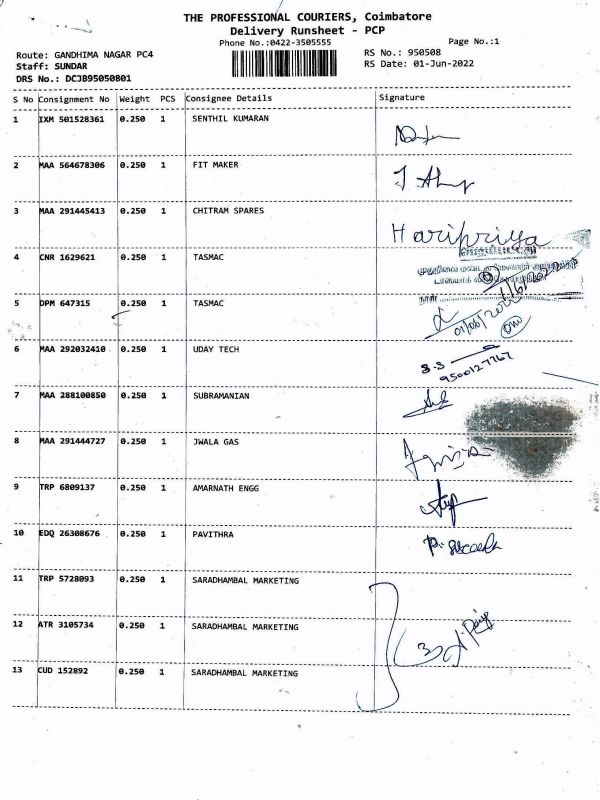 THE PROFESSIONAL COURIERS, Coimbatore
Delivery Runsheet - PCP
Phone No.:0422-3505555
Page No.:1
Route: GANDHIMA NAGAR PC4
RS No.: 950508
Staff: SUNDAR
RS Date: 01-Jun-2022
DRS No.: DCJB95050801
S No Consignment No Weight PCS Consignee Details Signature
1 IXM 501528361 0.250 1 SENTHIL KUMARAN
2 MAA 564678306 0.250 1 FIT MAKER
3 MAA 291445413 0.250 1 CHITRAM SPARES
Haripriya
4 CNR 1629621 0.250 1 TASMAC
5 DPM 647315 0.250 1 TASMAC
6 MAA 292032410 0.250 1 UDAY TECH
S.S
9500127767
7 MAA 288100850 0.250 1 SUBRAMANIAN
8 MAA 291444727 0.250 1 JWALA GAS
9 TRP 6809137 0.250 1 AMARNATH ENGG
10 EDQ 26308676 0.250 1 PAVITHRA
11 TRP 5728093 0.250 1 SARADHAMBAL MARKETING
12 ATR 3105734 0.250 1 SARADHAMBAL MARKETING
3
13 CUD 152892 0.250 1 SARADHAMBAL MARKETING